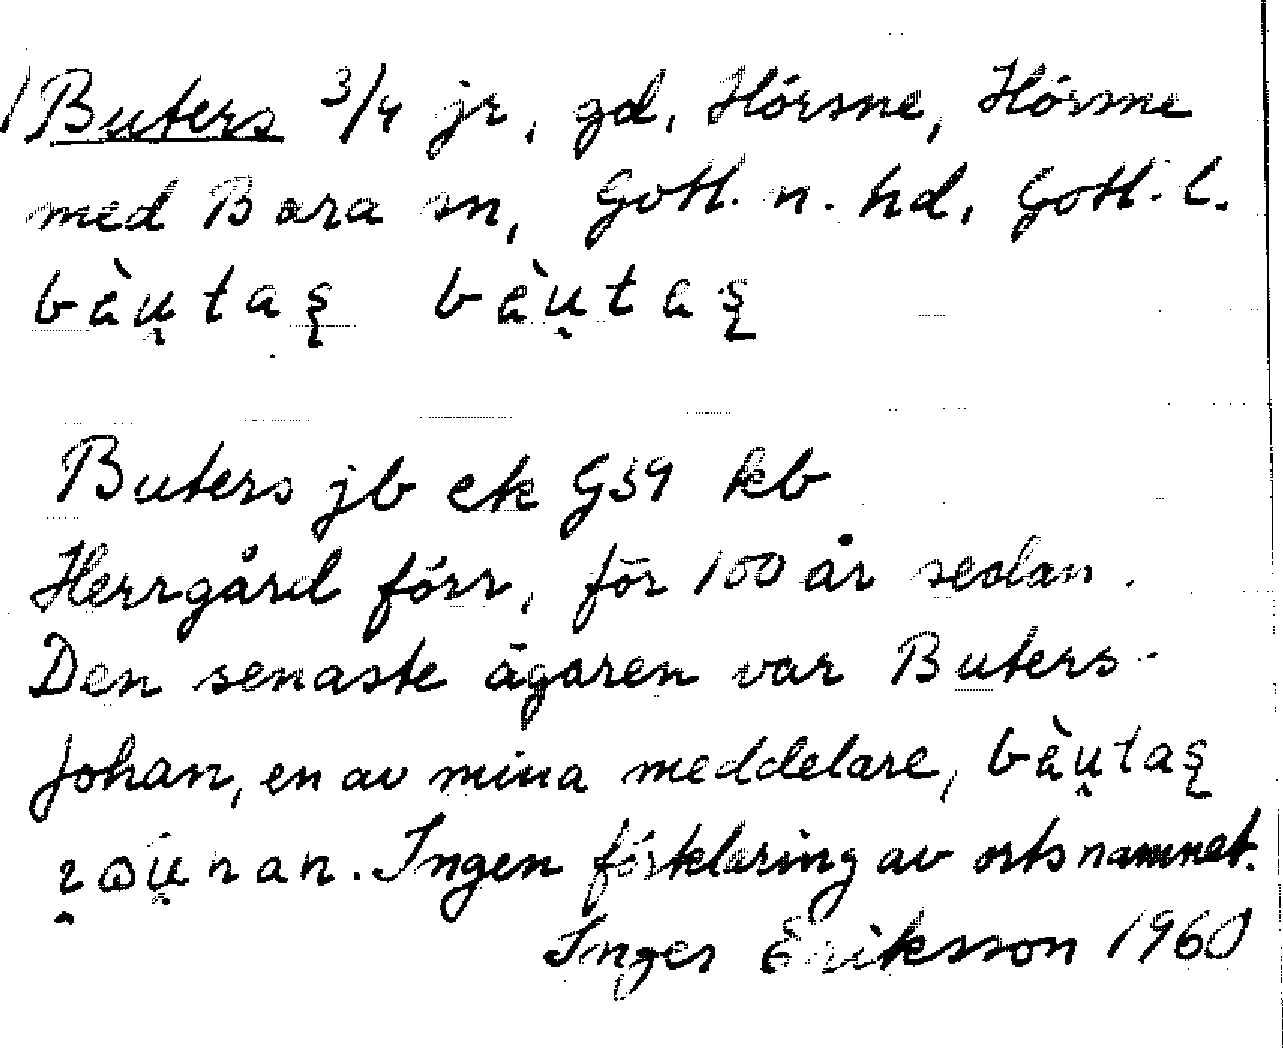 Buters 3/4 jr, gd, Hörsne, Hörsne
med Bara sn, Gotl. n. hd, Gotl. l.
bàu̯tas bàu̯tas
Buters jb ek G39 kb
Herrgård förr, för 100 år sedan.
Den senaste ägaren var Buters-
Johan, en av mina meddelare, bàu̯tas
Ingen förklaring av ortsnamnet.
Inger Eriksson 1960